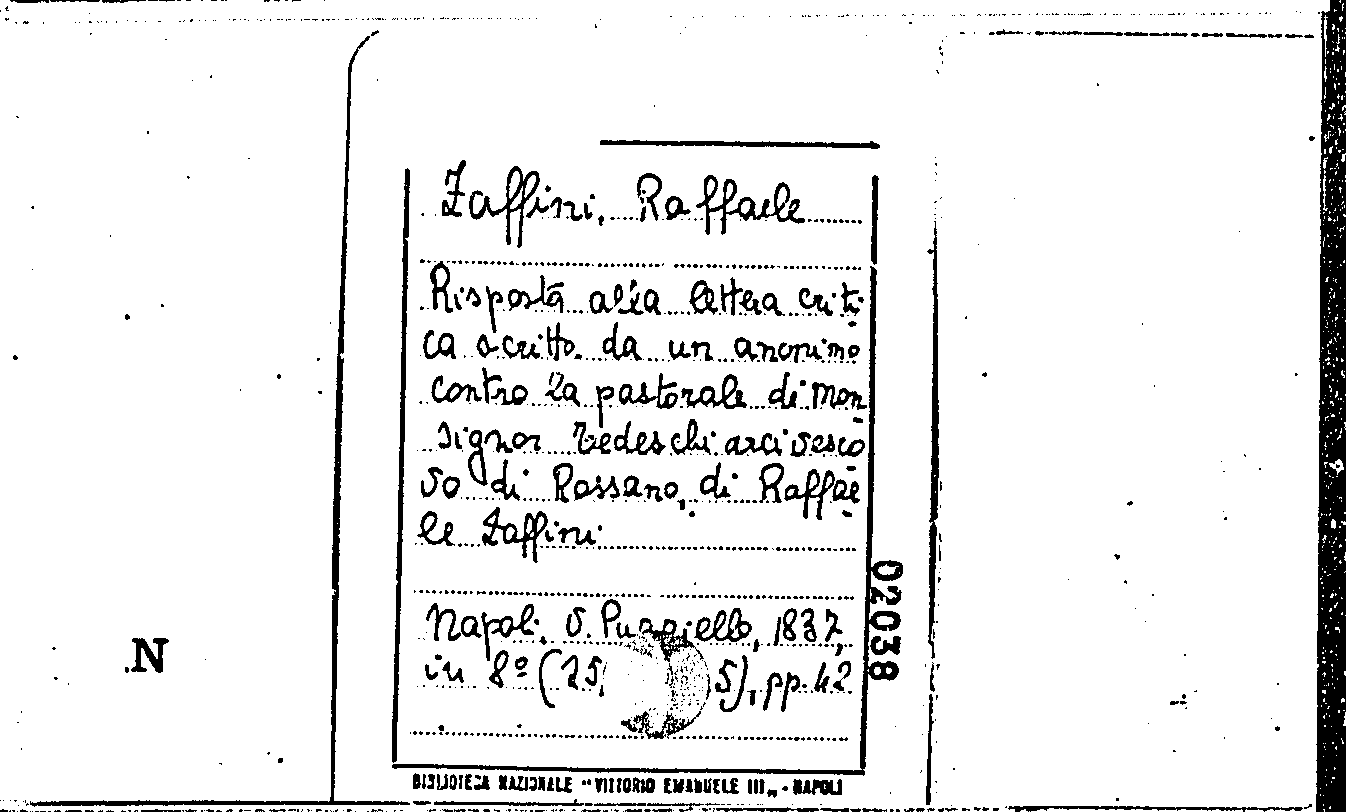 Zaffini, Raffaele
Risposta alla lettera criti-
ca scritto da un anonimo
contro la pastorale di Mon-
signor Tedeschi arcivesco-
vo di Rossano, di Raffae-
le Zaffini
Napoli, 1837,
in 8º (25, 5), pp. 42
02038
N
BIBLIOTECA NAZIONALE "VITTORIO EMANUELE III„ - NAPOLI